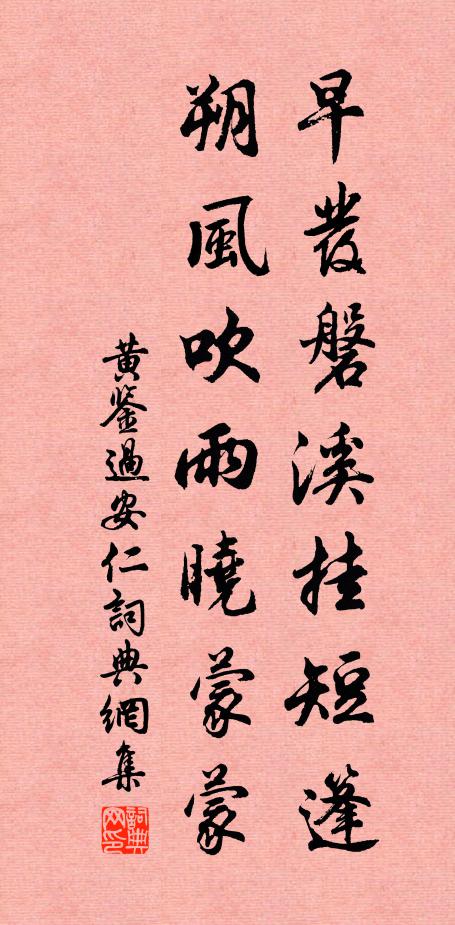 早發磐溪挂短篷
朔風吹雨曉蒙蒙
黃鉴過安仁詞典網集
詞典网印